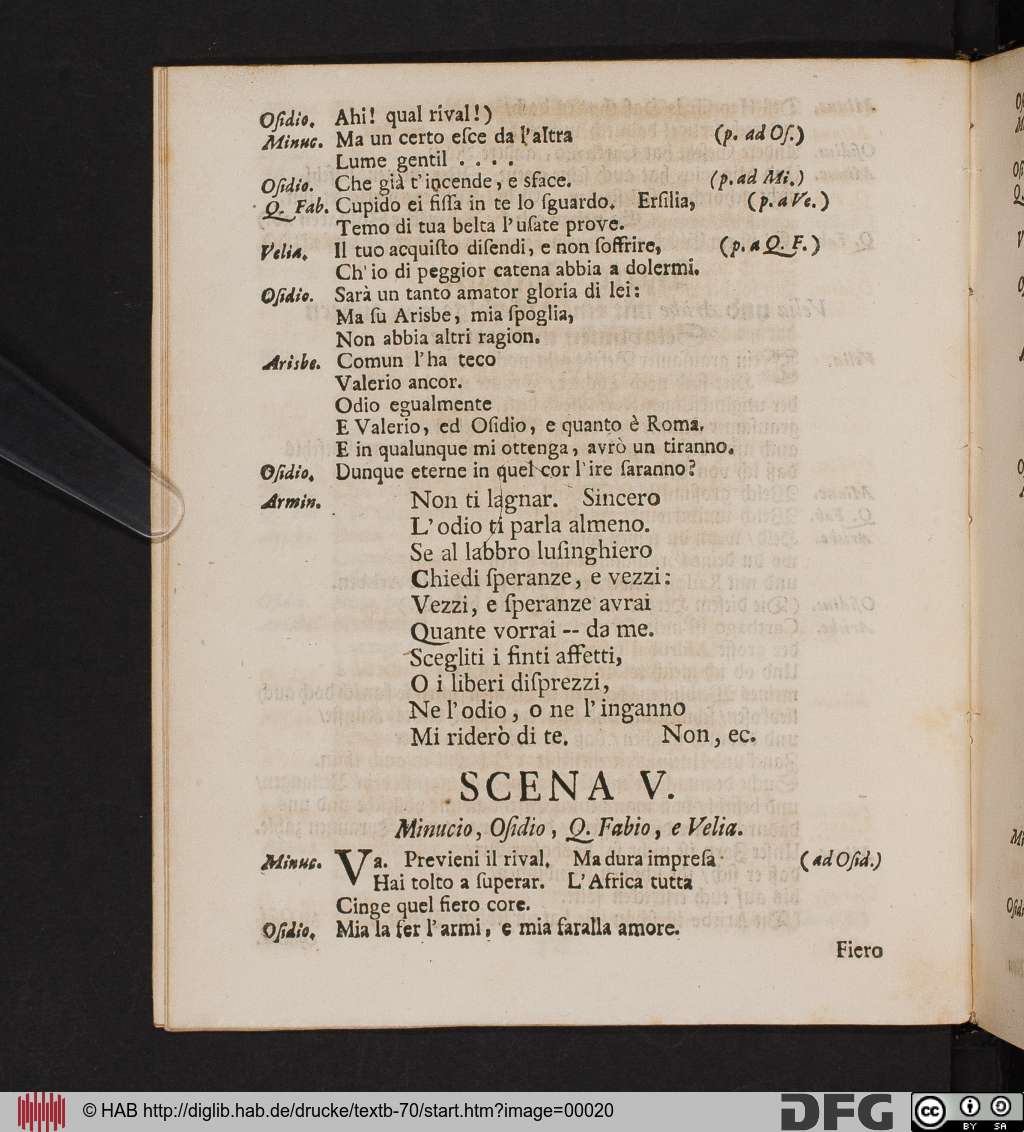 Oſidio. Ahi! qual rival!)
Minuc. Ma un certo eſce da l'altra (p. ad Oſ.)
Lume gentil . . . .
Oſidio. Che già t'incende, e sface. (p. ad Mi.)
Q. Fab. Cupido ei fiſſa in te lo ſguardo. Erſilia, (p. a Ve.)
Temo di tua belta l'uſate prove.
Velia. Il tuo acquiſto diſendi, e non ſoffrire, (p. a Q. F.)
Ch'io di peggior catena abbia a dolermi.
Oſidio. Sarà un tanto amator gloria di lei:
Ma ſu Arisbe, mia ſpoglia,
Non abbia altri ragion.
Arisbe. Comun l'ha teco
Valerio ancor.
Odio egualmente
E Valerio, ed Oſidio, e quanto è Roma.
E in qualunque mi ottenga, avrò un tiranno.
Oſidio. Dunque eterne in quel cor l'ire ſaranno?
Armin. Non ti lagnar. Sincero
L'odio ti parla almeno.
Se al labbro luſinghiero
Chiedi ſperanze, e vezzi:
Vezzi, e ſperanze avrai
Quante vorrai -- da me.
Scegliti i finti affetti,
O i liberi diſprezzi,
Ne l'odio, o ne l'inganno
Mi riderò di te. Non, ec.
SCENA V.
Minucio, Oſidio, Q. Fabio, e Velia.
Minuc. Va. Previeni il rival. Ma dura impreſa (ad Oſid.)
Hai tolto a ſuperar. L'Africa tutta
Cinge quel fiero core.
Oſidio. Mia la fer l'armi, e mia faralla amore.
Fiero
© HAB http://diglib.hab.de/drucke/textb-70/start.htm?image=00020
DFG
cc BY SA